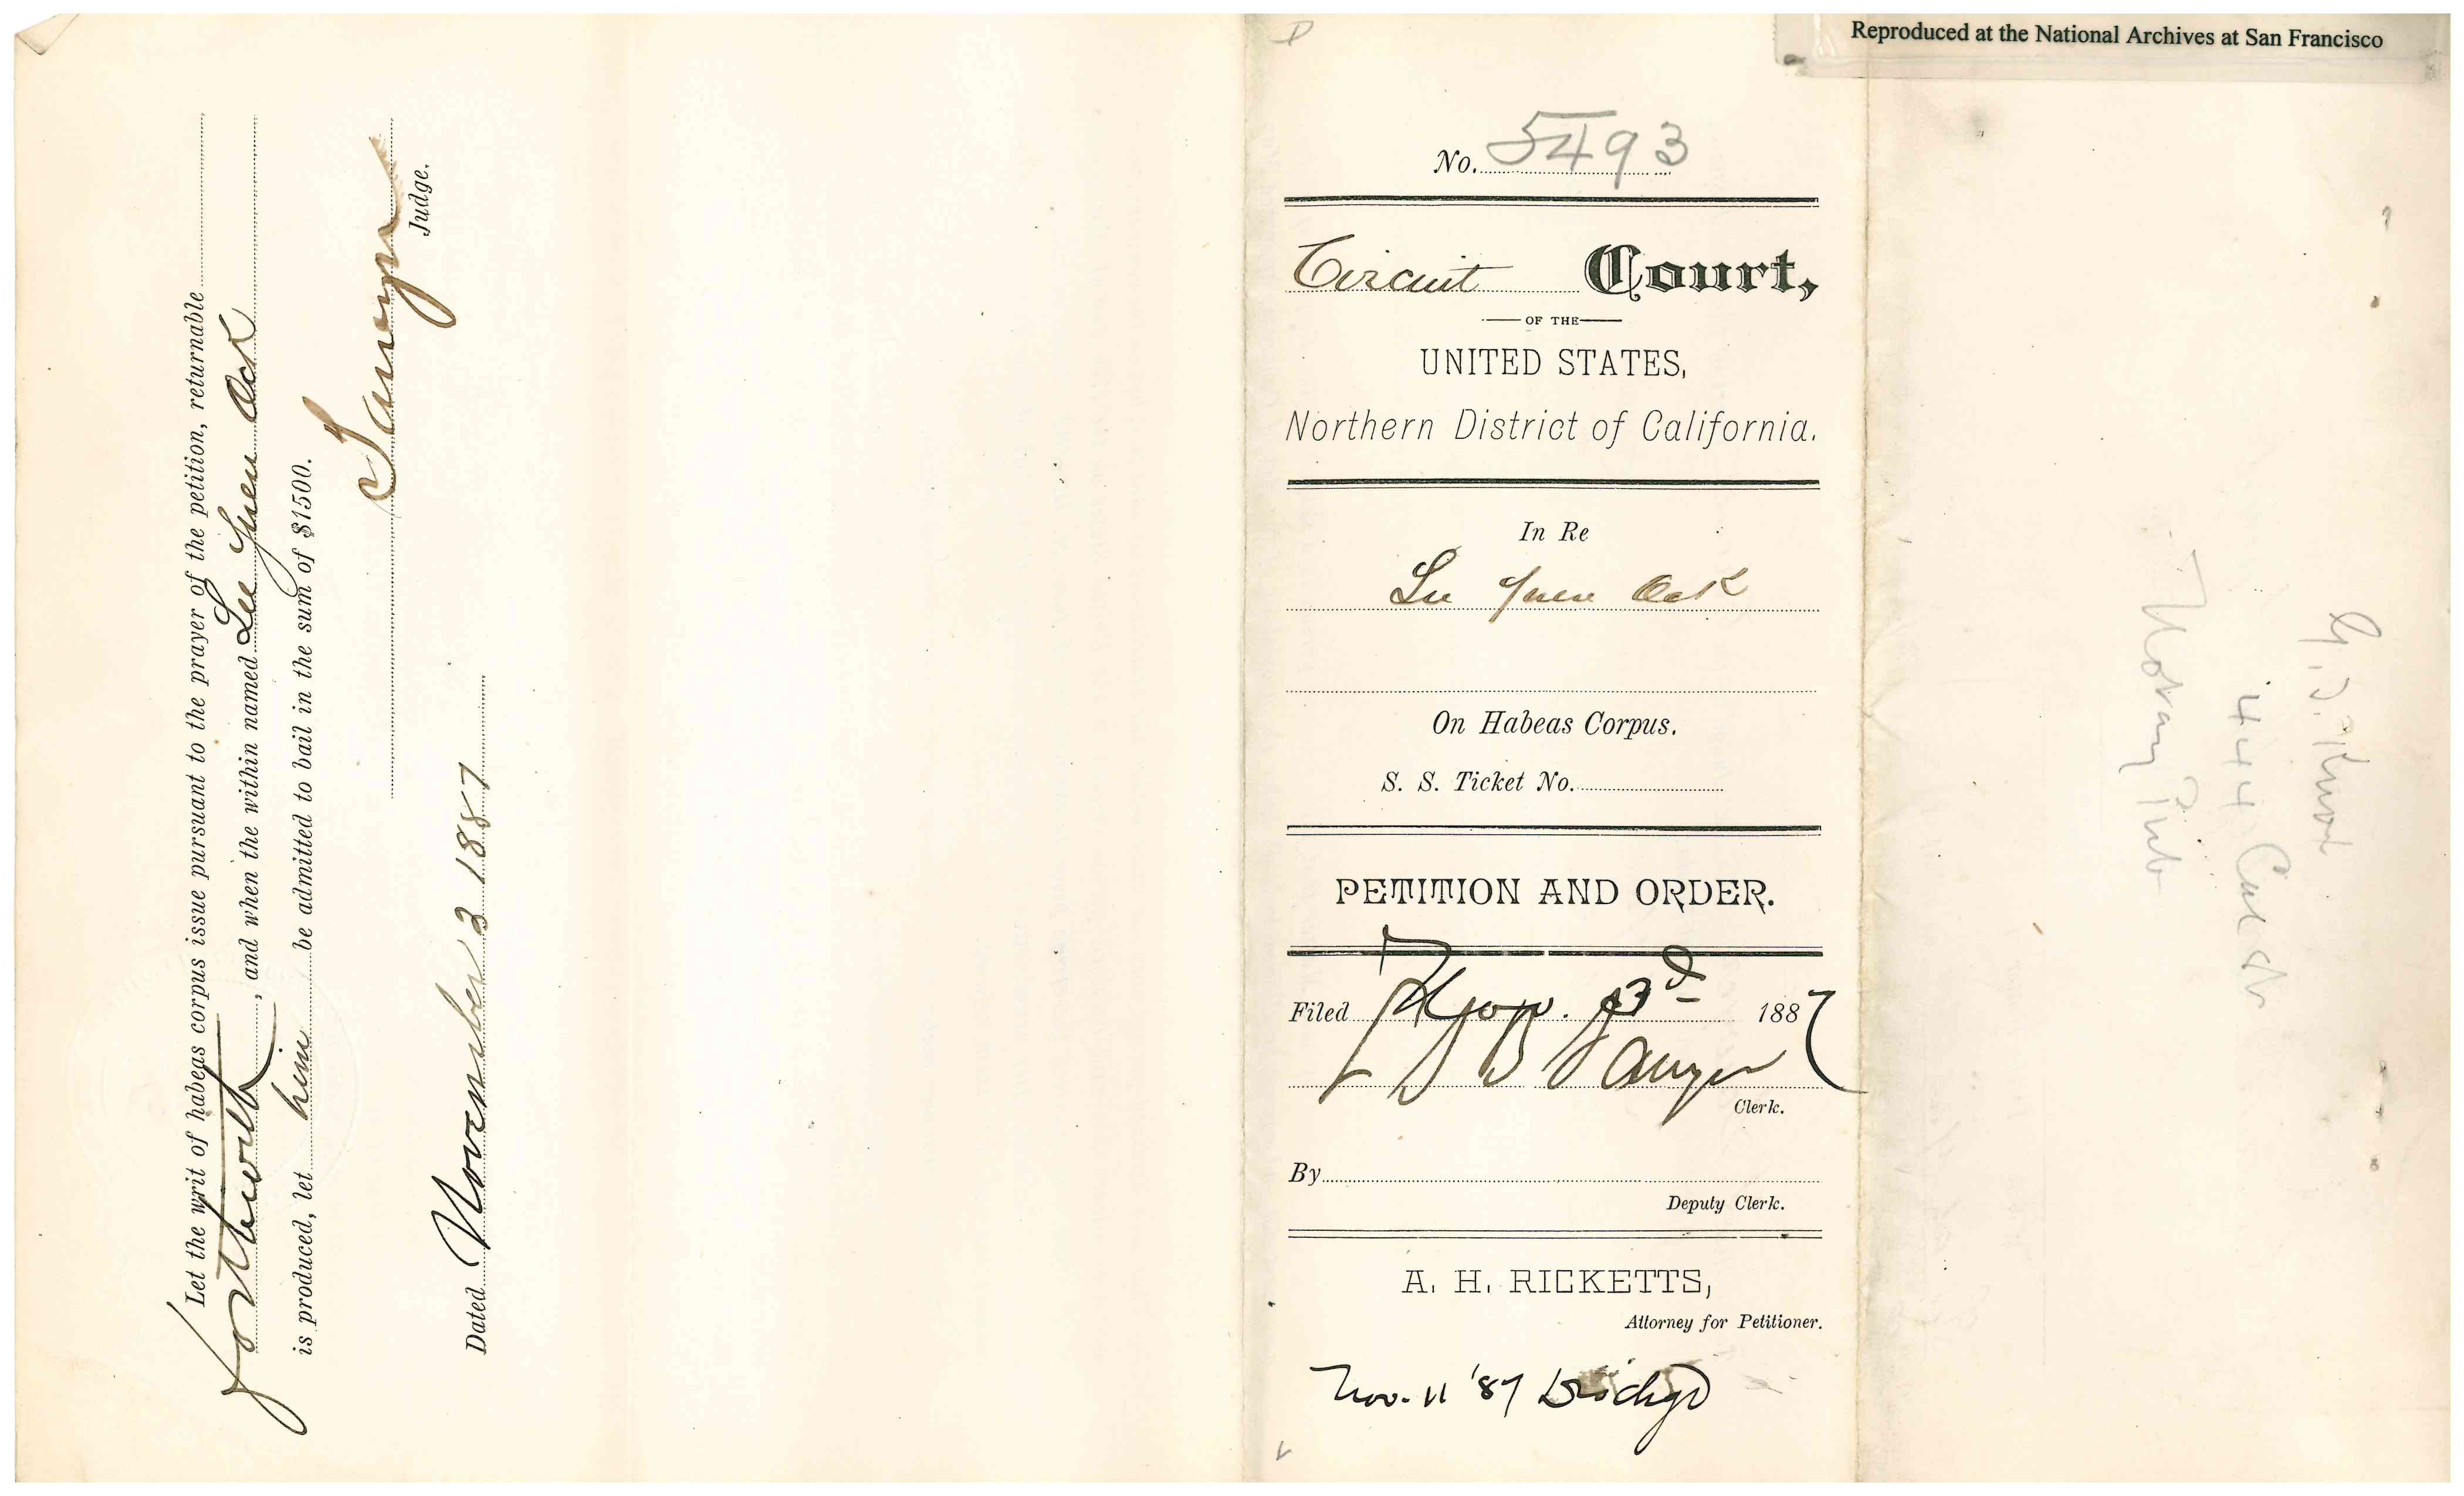 Let the writ of habeas corpus issue pursuant to the prayer of the petition, returnable
forthwith, and when the within named Lee Yuen Ack
is produced, let him be admitted to bail in the sum of $1500.
Sawyer
Judge.
Dated November 3 1887
Reproduced at the National Archives at San Francisco
No. 5493
Circuit Court,
OF THE
UNITED STATES,
Northern District of California.
In Re
Lu Yuen Ack
On Habeas Corpus.
S. S. Ticket No.
PETITION AND ORDER.
Filed Nov. 3d 1887
L S B Sawyer
Clerk.
By
Deputy Clerk.
A. H. RICKETTS,
Attorney for Petitioner.
Nov. 11 '87 Dischgd
444